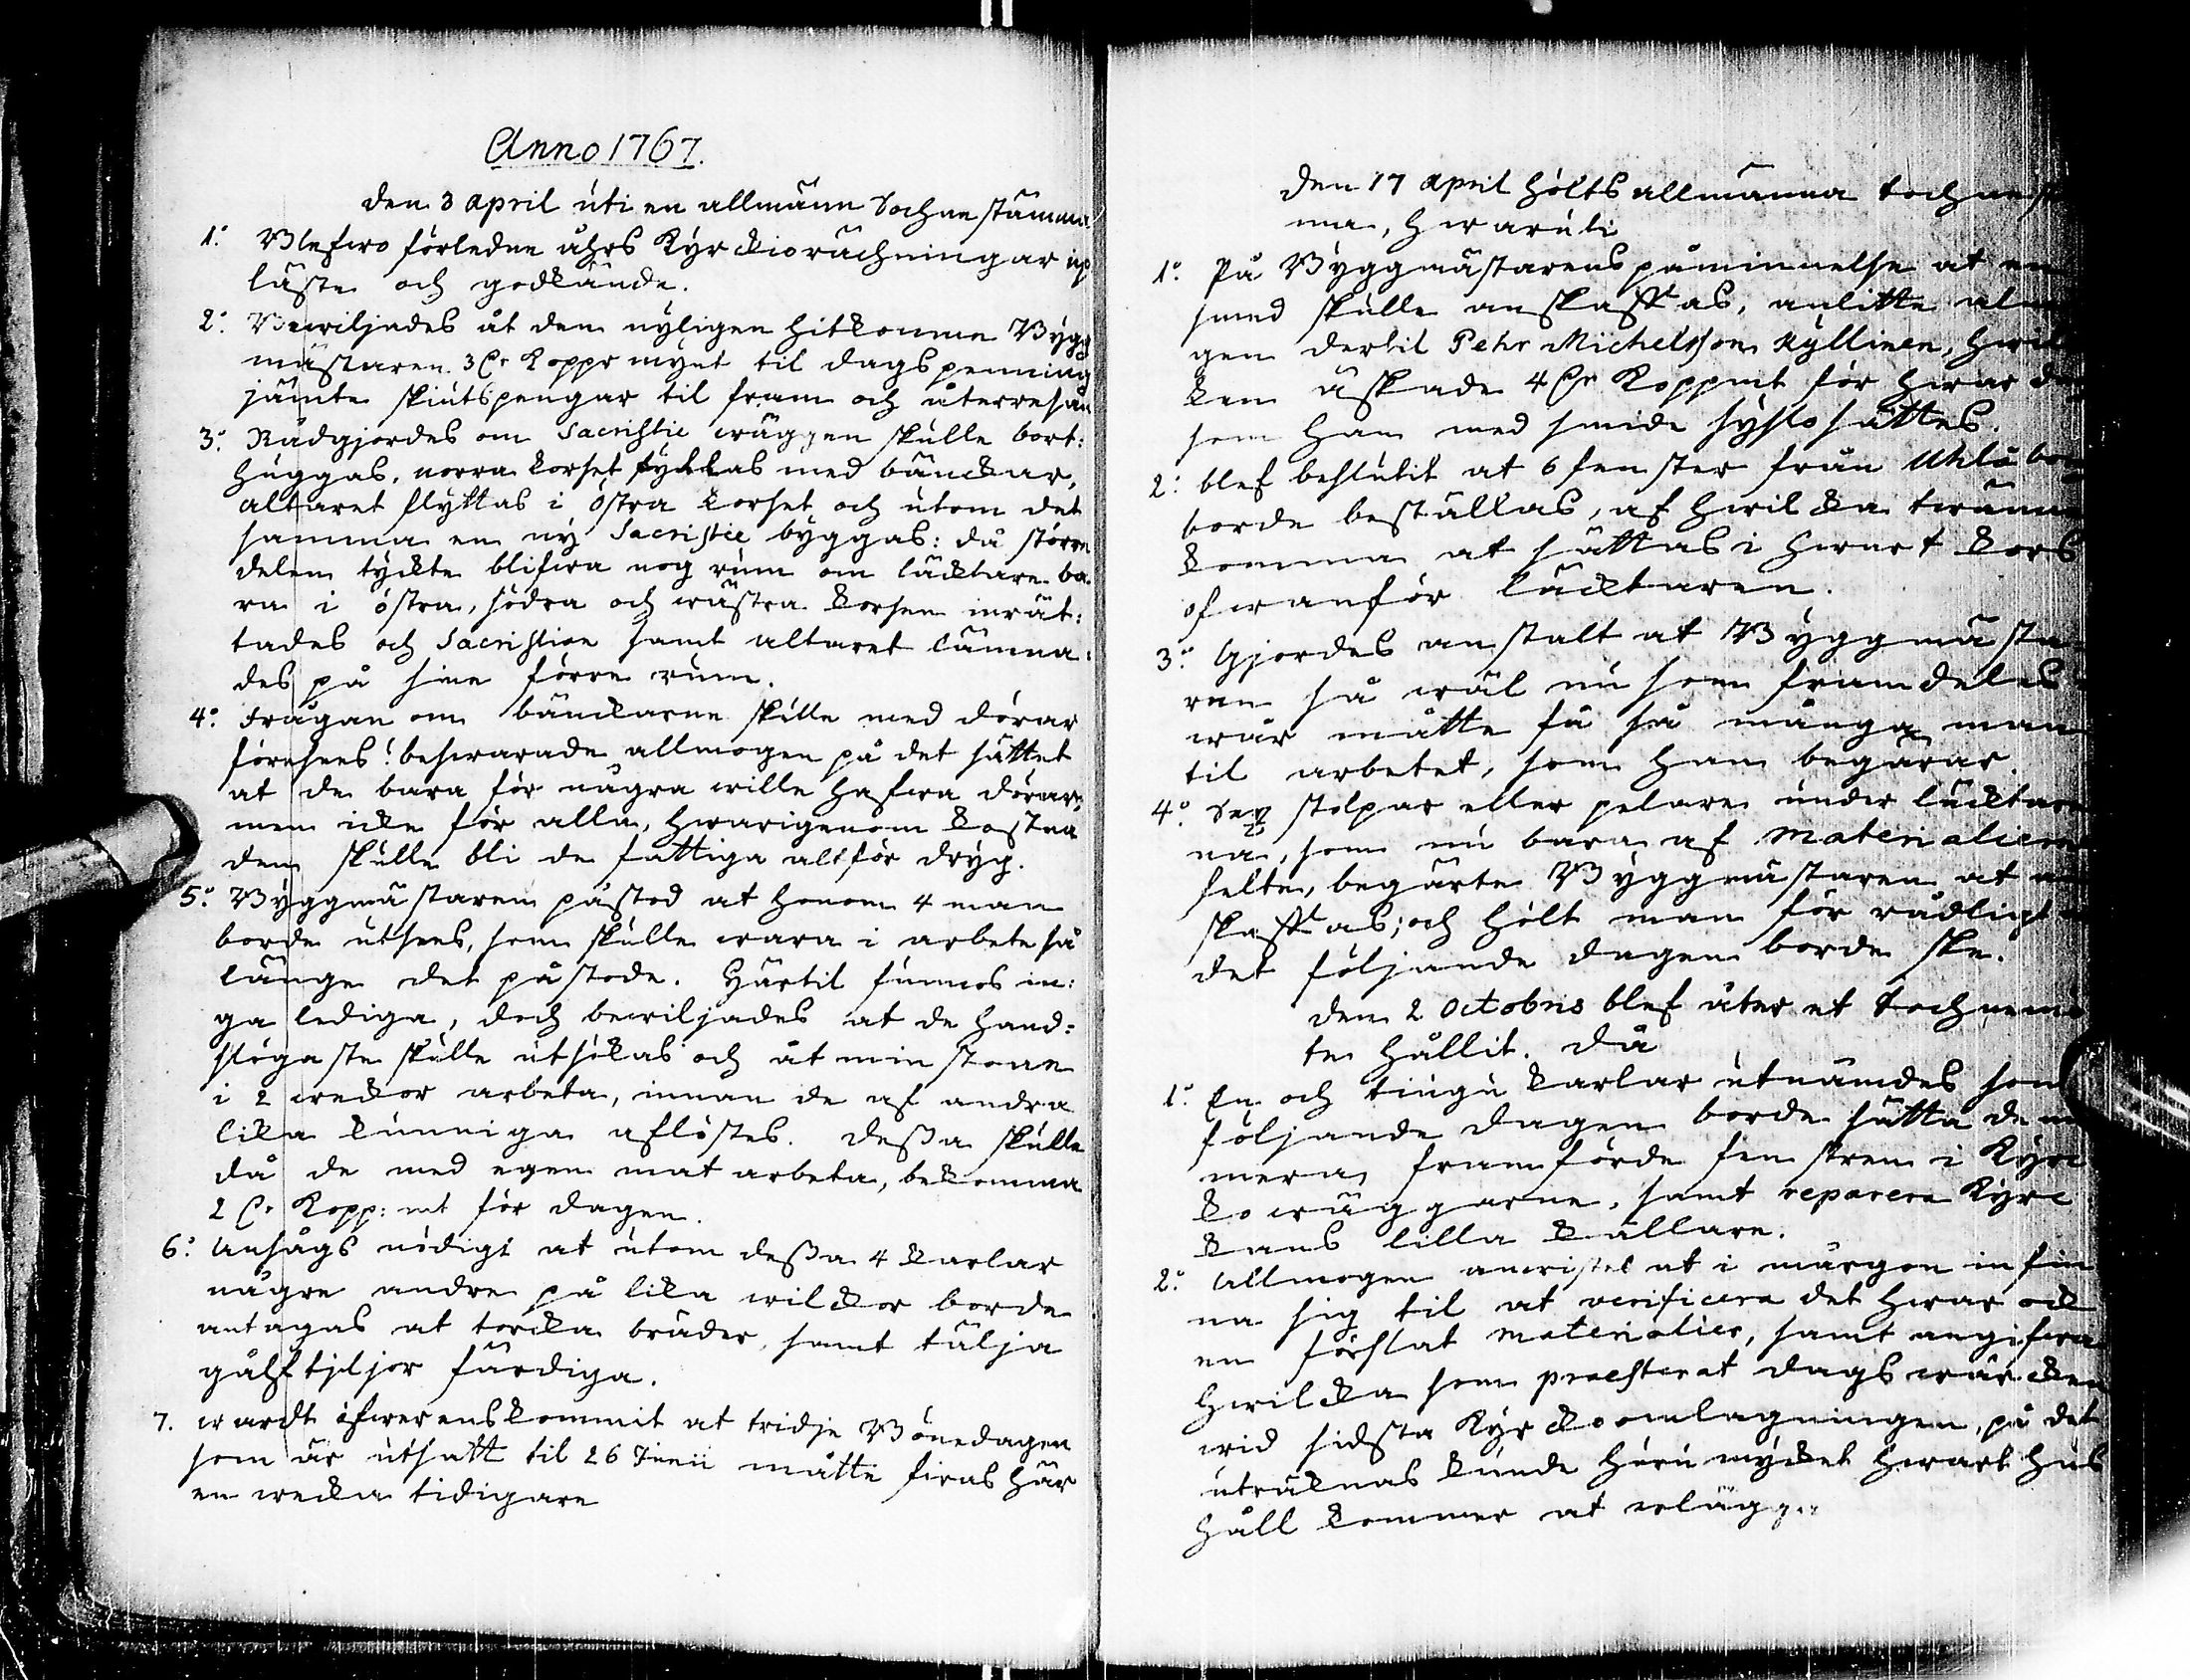 Anno 1767.
den 3 April uti en allmänn Sochnestämma
1:o Blefwo förledne åhrs Kyrckioräckningar up
läste och godkände.
2:o Bewiljades åt den nyligen hitkomne Bygg
mästaren 3 Dr Koppr mynt til dagspenning
jämte skiutspengar til fram och återresan
3:o Rådgjordes om Sacristie wäggen skulle bort:
huggas, norra korset fyllas med bänckar,
altaret flyttas i östra korset och utom det
samma en ny Sacristie byggas: då större
delen tyckte blifwa nog rum om läcktare ba
ra i östra, södra och wästra korsen inrät:
tades och Sacristien samt altaret lämna:
des på sine förre rum.
4:o Frågan om bänckarne skulle med dörar
föreses! beswarade allmogen på det sättet
at de bara för några wille hafwa dörar,
men icke för alla, hwarigenom kostna
den skulle bli de fattiga altför dryg.
5:o Byggmästaren påstod at honom 4 man
borde utsees, som skulle wara i arbete så
länge det påstode. Härtil funnos in:
ga lediga, doch bewiljades at de hand:
slögaste skulle utsökas och åtminstone
i 2 weckor arbeta, innan de af andra
lika kunniga aflöstes. Dessa skulle
då de med egen mat arbeta, bekomma
2 Dr Kopp: mt för dagen.
6:o Ansågs nödigt at utom dessa 4 karlar
någre andre på lika wilckor borde
antagas at torcka bräder, samt tälja
gålftiljor färdiga.
7. wardt öfwerenskommit at tridje Bönedagen
som är utsatt til 26 Junii måtte firas här
en wecka tidigare
den 17 April hölts allmänna Sochnestä
ma, hwaruti
1:o På Byggmästarens påminnelse at en
smed skulle anskaffas, anlitte alm
gen dertil Pehr Michelsson Kyllinen, hwil
ken äskade 4 Dr Koppmt för hwar d
som han med smide syslosättes.
2:o blef beslutit at 6 fenster från Uhlåborg
borde beställas, af hwilcka twänne
komma at sättas i hwart kors
ofwanför läcktaren.
3:o Gjordes anstalt at Byggmästa
ren så wäl nu som framdeles
wår måtte få så många man
til arbetet, som han begärar.
4:o Sex stolpar eller pelare under läcktare
na, som nu bara af materialier
felte, begärte Byggmästaren at an
skaffas; och hölt man för rådligt
det följande dagen borde ske.
Den 2 Octobris blef åter et Sochnemö
te hållit. Då
1:o En och tiugu karlar utnämdes som
följande dagen borde sätta de nu
mera framförde fenstren i Kyrc
kowäggarne, samt reparera Kyrc
kans lilla källare.
2:o Allmogen anwistes at i mårgon infin
na sig til at verificera det hwar och
en förslat materialier, samt angifwa
hwilcka som praesterat dagswärcken
wid sidsta Kyrckoomlagningen, på det
uträknas kunde huru mycket hwart hus
håll kommer at erlägga